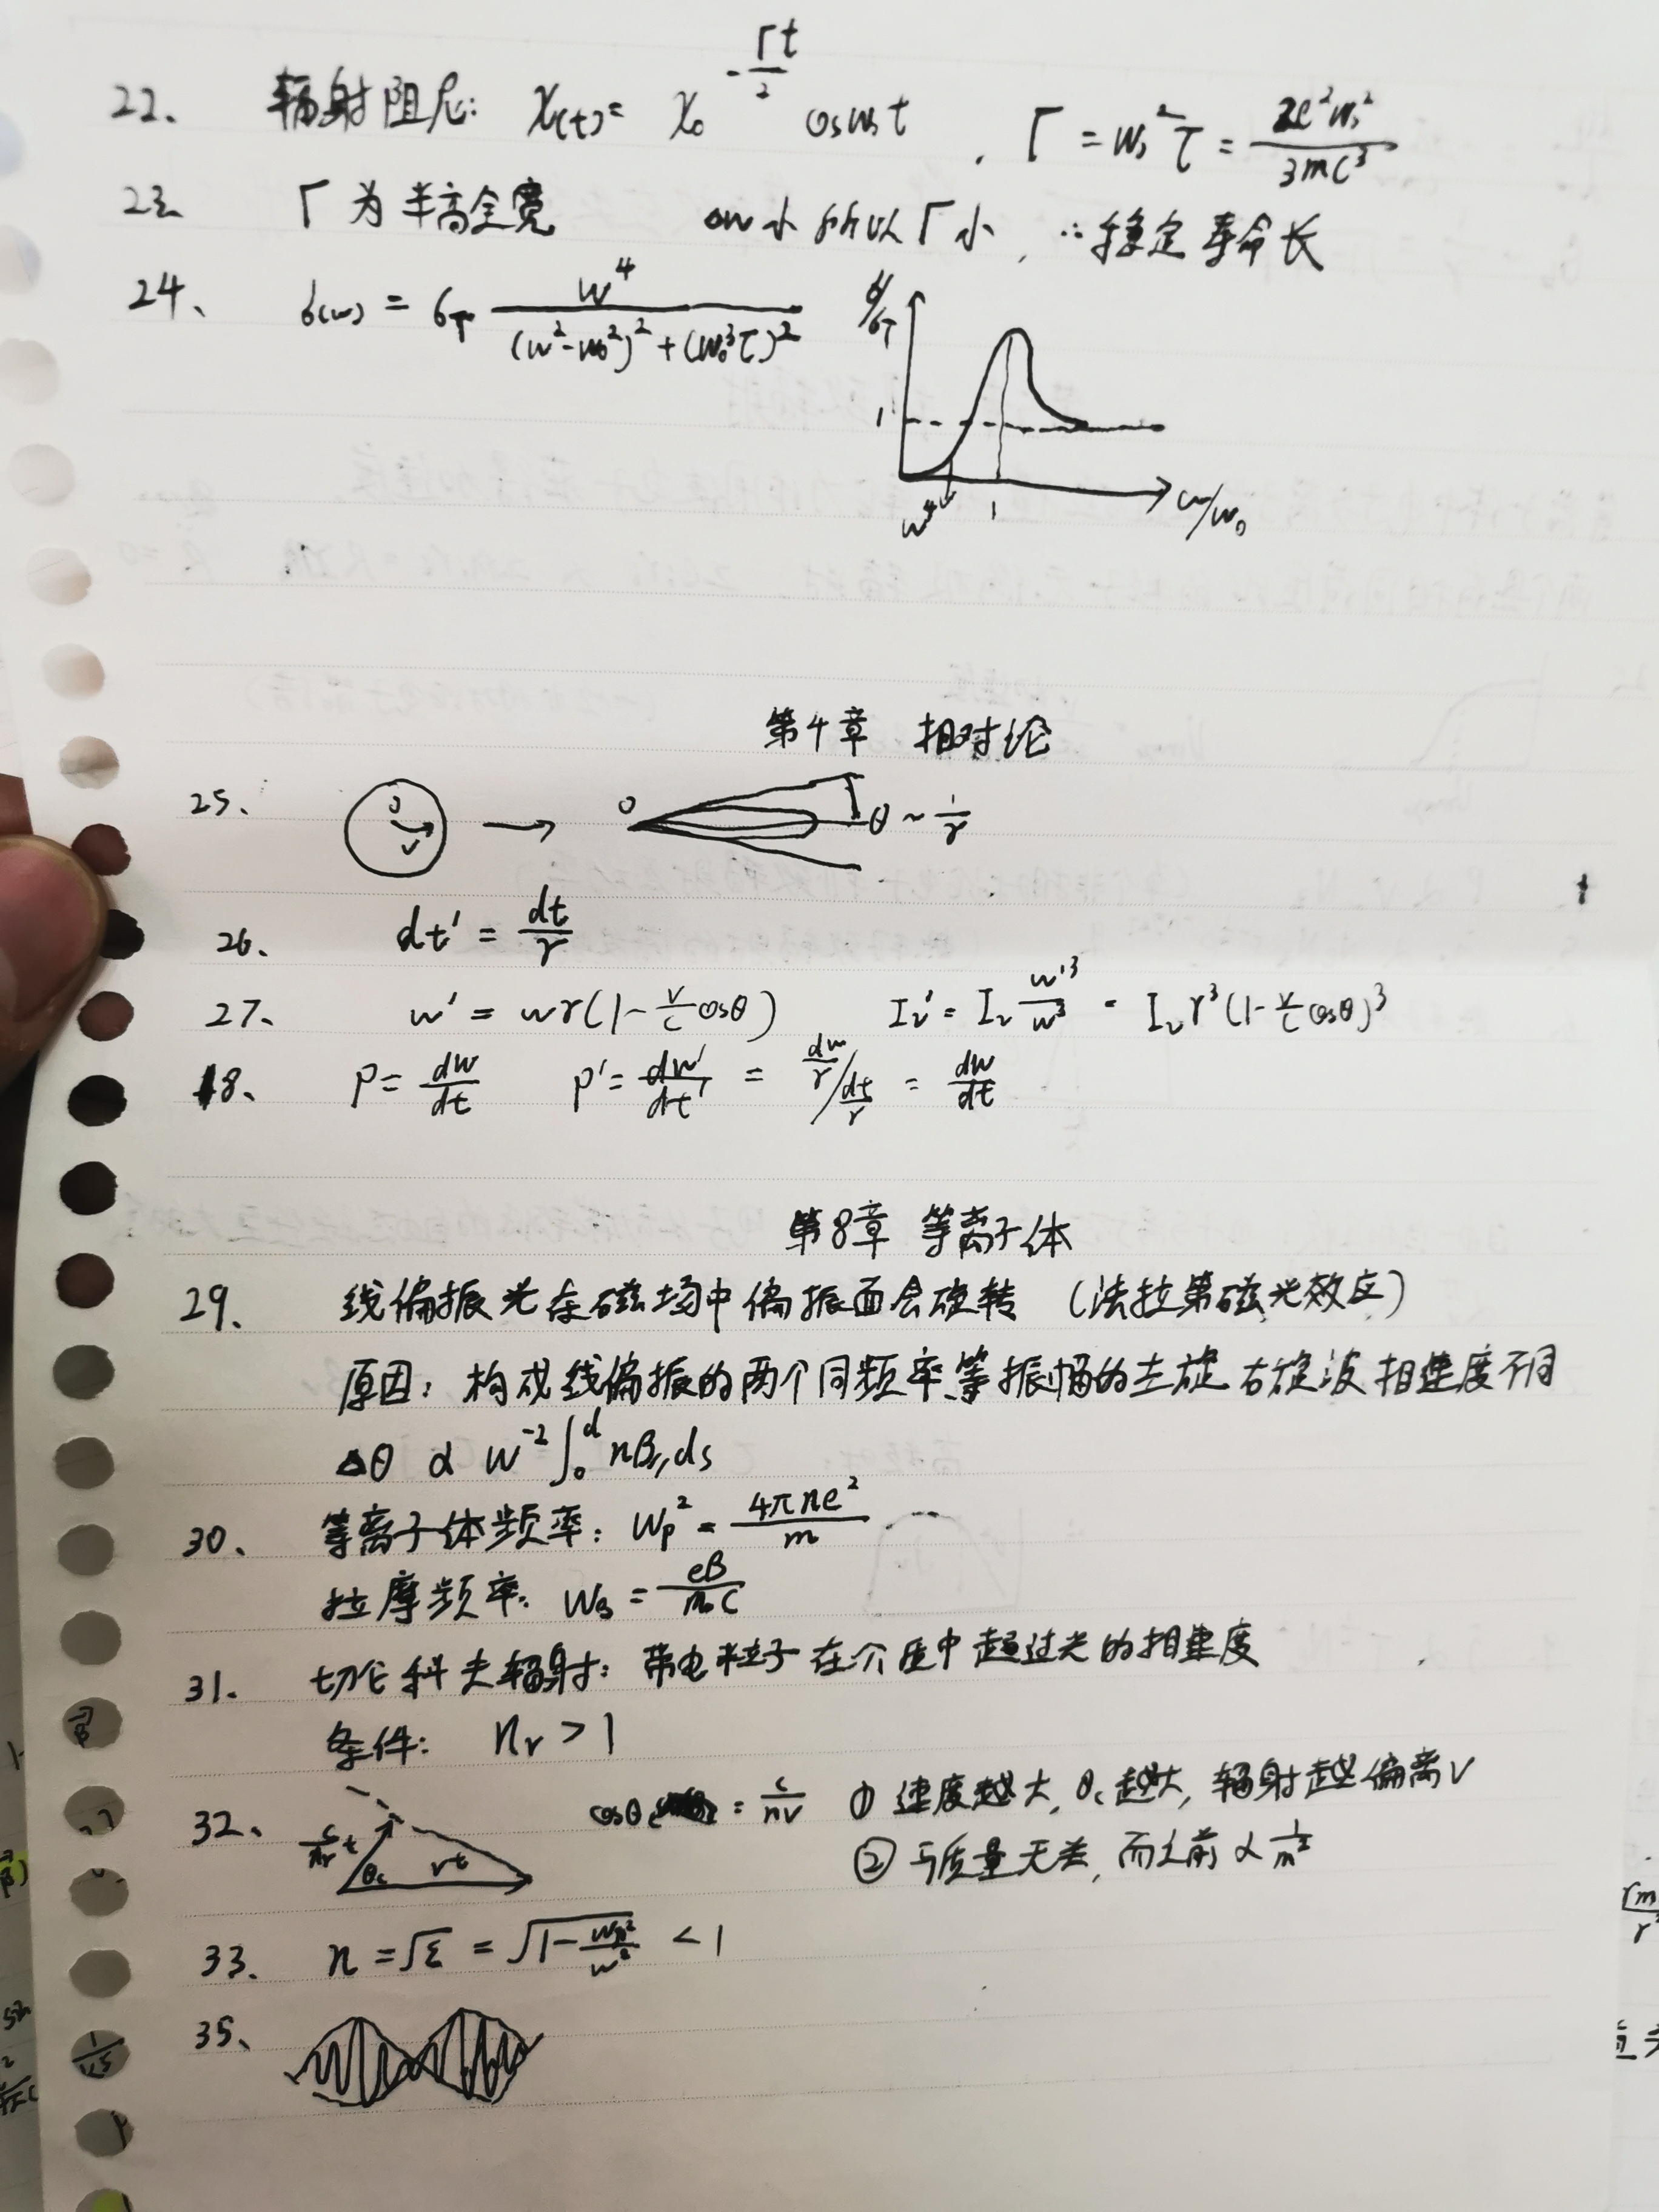 22、 辐射阻尼: x(t)= x₀ -Γt/2 cosω₀t , Γ = ω₀²τ = 2e²ω₀²/3mc³
23、 Γ为半高全宽 Δω小所以Γ小, ∴稳定寿命长
24、 σ(ω) = σT ω⁴/((ω²-ω₀²)²+(ω₀³τ)²)
σ/σT
1
ω⁴
1
ω/ω₀
第4章 相对论
25、 θ ~ 1/γ
v
26、 dt' = dt/γ
27、 ω' = ωγ(1-v/c cosθ) Iν' = Iν ω'³/ω³ = Iν γ³(1-v/c cosθ)³
18、 P = dw/dt P' = dw'/dt' = dw/γ / dt/γ = dw/dt
第8章 等离子体
29、 线偏振光在磁场中偏振面会旋转 (法拉第磁光效应)
原因: 构成线偏振的两个同频率、等振幅的左旋右旋波相速度不同
Δθ ∝ ω⁻² ∫₀ᵈ nB∥ds
30、 等离子体频率: ωp² = 4πne²/m
拉摩频率: ωB = eB/mc
31、 切伦科夫辐射: 带电粒子在介质中超过光的相速度
条件: nr > 1
32、 c/nr t θc vt cosθc = c/nv ① 速度越大, θc越大, 辐射越偏离v
② 与质量无关, 而之前 ∝ 1/m²
33、 n = √ε = √(1-ωp²/ω²) < 1
35、